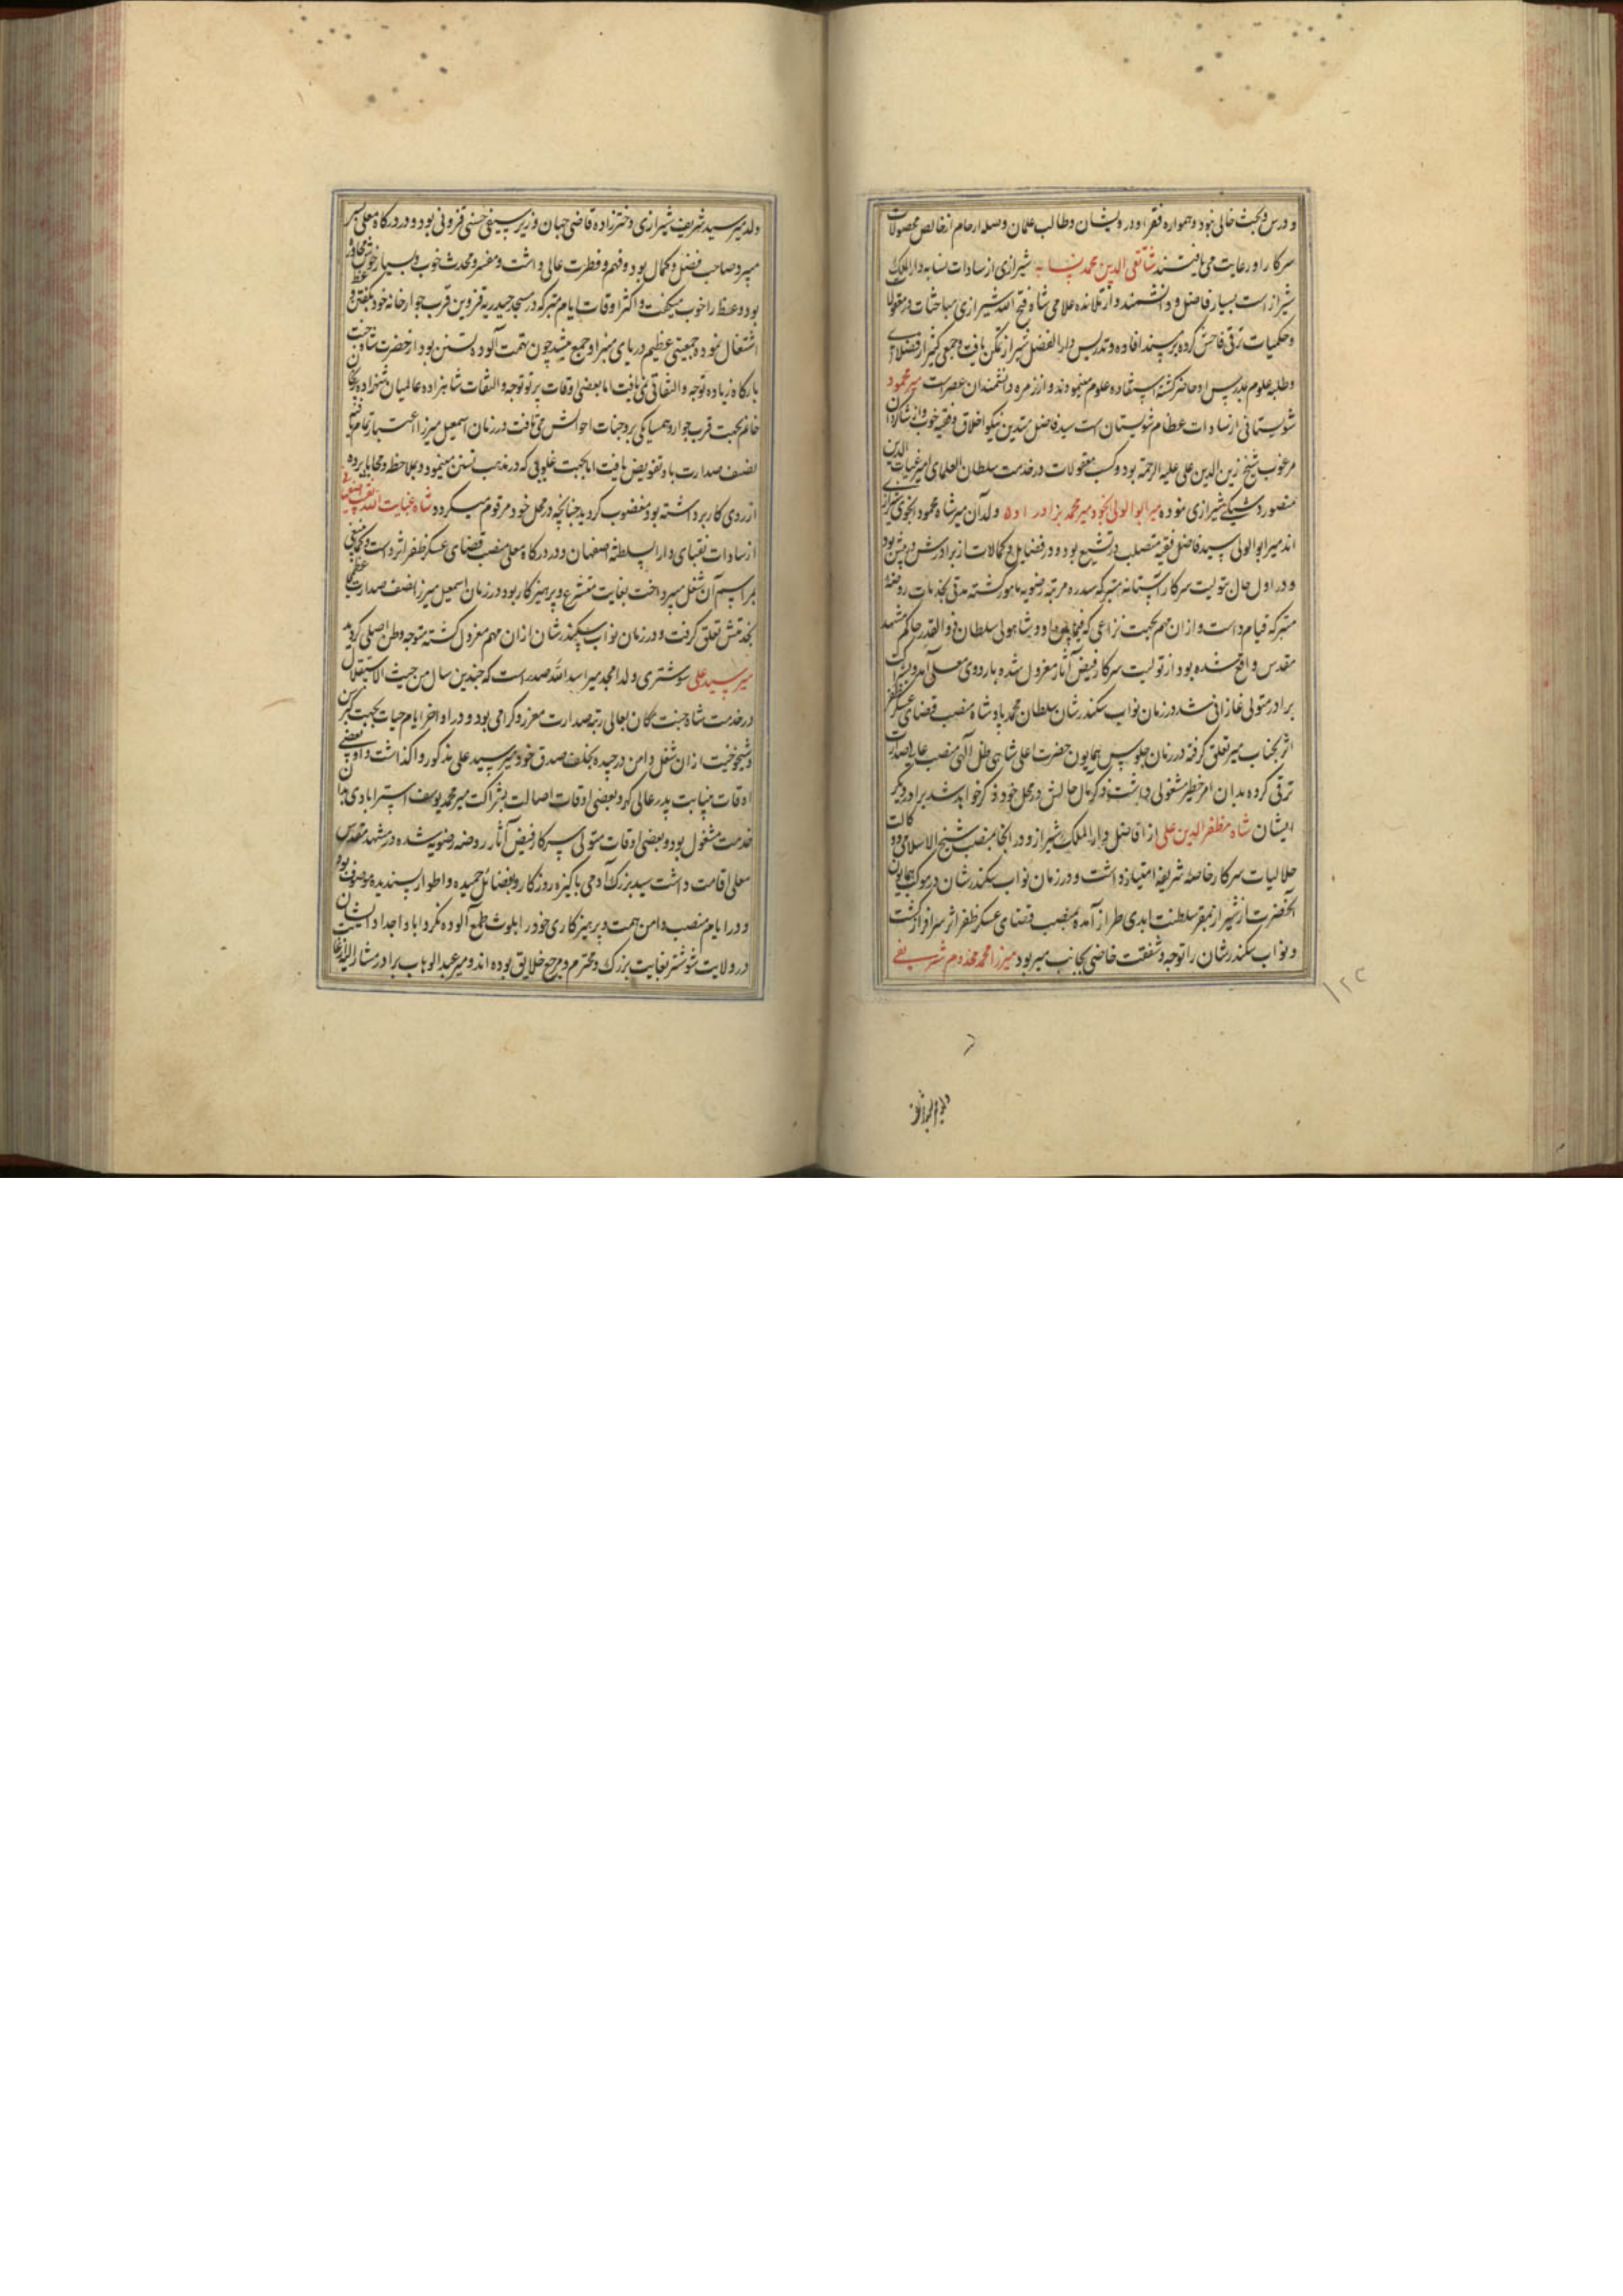 و درس و بحث خالی نبود و همواره فقرا و درویشان و طالب علمان وصله ارحام از خالص محصولات
سرکار او رعایت می یافتند شاه تقی الدین محمد نسابه شیرازی از سادات نسابه دار الملک
شیراز است بسیار فاضل و دانشمند و از تلامذه علامی شاه فتح الله شیرازی مباحثات در معقولات
و حکمیات ترقی فاحش کرده بر مسند افاده و تدریس دار الفضل شیراز تمکن یافت و جمعی کثیر از فضلا
و طلبه علوم بدرس او حاضر گشته استفاده علوم مینمودند و از زمره دانشمندان عصر است میر محمود
شولستانی از سادات عظام شولستان است سید فاضل متدین نیکو اخلاق و فقیه خوب و از شاگردان
مرغوب شیخ زین الدین علی علیه الرحمة بود و کسب معقولات در خدمت سلطان العلمای امیر غیاث الدین
منصور دشتکی شیرازی نموده میر ابو الولی انجو و میر محمد برادر او ولدان میر شاه محمود انجوی شیرازی
اند میر ابو الولی سید فاضل فقیه متصلب در تشیع بود و در فضایل و کمالات از برادرش در پیش بود
و در اول حال بتولیت سرکار آستانه متبرکه سدره مرتبه رضویه مامور گشته مدتی بخدمات روضه
متبرکه قیام داشت و از ان مهم بجهت نزاعی که فیمابین او و شاه ولی سلطان ذو القدر حاکم مشهد
مقدس واقع شده بود از تولیت سرکار فیض آثار معزول شده باردوی معلی آمد و
برادر متولی غازانی شد در زمان نواب سکندرشان سلطان محمد پادشاه منصب قضای عسکر ظفر
اثر بجناب میر تعلق گرفته در زمان جلوس همایون حضرت اعلی شاهی ظل آلهی منصب صدارت
ترقی کرده بدان امر خطیر مشغولی داشت ذکر مآل حالش در محل خود ذکر خواهد شد برادر دیگر
ایشان شاه مظفر الدین علی از افاضل دار الملک شیراز و در آنجا بمنصب شیخ الاسلامی و وکالت
حلالیات سرکار خاصه شریفه امتیاز داشت و در زمان نواب سکندرشان در موکب همایون
آنحضرت از شیراز بمقر سلطنت ابدی طراز آمده بمنصب قضای عسکر ظفر اثر سرافراز گشت
و نواب سکندرشان را توجه و شفقت خاصی بجانب میر بود میرزا محمد مخدوم شریفی
ولد میر سید شریف شیرازی دخترزاده قاضی جهان وزیر سیفی حسنی قزوینی بود و در درگاه معلی بسر
میبرد صاحب فضل و کمال بود و فهم و فطرت عالی داشت و مفسر و محدث خوب و بسیار خوش محاوره
بود وعظ را خوب میگفت و اکثر اوقات ایام متبرکه در مسجد حیدریه قزوین قرب جوار خانه خود بگفتن وعظ
اشتغال نموده جمعیتی عظیم در پای منبر او جمع میشد چون بتهمت آلوده تسنن بود از حضرت شاه جنت
بارگاه زیاده توجه و التفاتی نمی یافت اما بعضی اوقات پرتو توجه و التفات شاهزاده عالمیان شهزاده پریخان
خانم بجهت قرب جوار و همسایگی بر وجنات احوالش می تافت در زمان اسمعیل میرزا اعتبار تمام یافته
نصف صدارت باو تفویض یافت اما بجهت غلویی که در مذهب تسنن مینمود و بی ملاحظه و محابا پرده
از روی کار برداشته بود مغضوب گردید چنانچه در محل خود مرقوم میگردد شاه عنایت الله نقیب اصفهانی
از سادات نقبای دار السلطنه اصفهان و در درگاه معلی منصب قضای عسکر ظفر اثر داشت و کماینبغی
بمراسم آن شغل میپرداخت بغایت متشرع و پرهیزکار بود در زمان اسمعیل میرزا نصف صدارت عظمی
بخدمتش تعلق گرفت و در زمان نواب سکندرشان از ان مهم معزول گشته متوجه وطن اصلی گردید
میر سید علی شوشتری ولد امجد میر اسد الله صدر است که چندین سال من حیث الاستقلال
در خدمت شاه جنت مکان بعالی رتبه صدارت معزز و گرامی بود و در اواخر ایام حیات بجهت کبر سن
و شیخوخیت از ان شغل دامن درچیده بخلف صدق خود میر سید علی مذکور واگذاشت و او بعضی
اوقات بنیابت پدر عالی گهر و بعضی اوقات اصالت بشراکت میر محمد یوسف استرابادی بدان
خدمت مشغول بود و بعضی اوقات متولی سرکار فیض آثار روضه رضویه شده در مشهد مقدس
معلی اقامت داشت سید بزرگ آدمی پاکیزه روزگار و بفضائل حمیده و اطوار پسندیده موصوف بود
و در ایام منصب دامن همت و پرهیزکاری خود را بلوث طمع آلوده نکرد ابا و اجداد ایشان
در ولایت شوشتر بغایت بزرگ و محترم و مرجع خلایق بوده اند و میر عبد الوهاب برادر مشار الیه